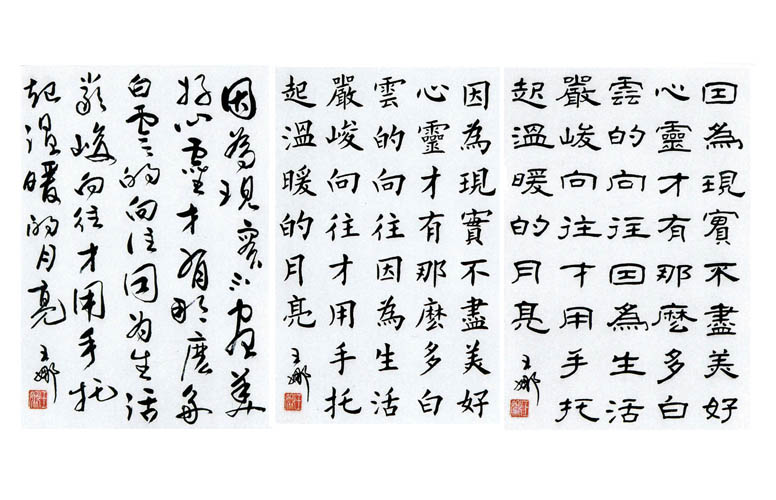 因為現實不盡美好
心靈才有那麼多白
雲的向往因為生活
嚴峻向往才用手托
起溫暖的月亮
王娜
因為現實不盡美好
心靈才有那麼多白
雲的向往因為生活
嚴峻向往才用手托
起溫暖的月亮
王娜
因為現實不盡美
好心靈才有那麼多
白雲的向往因為生活
嚴峻向往才用手托
起溫暖的月亮
王娜